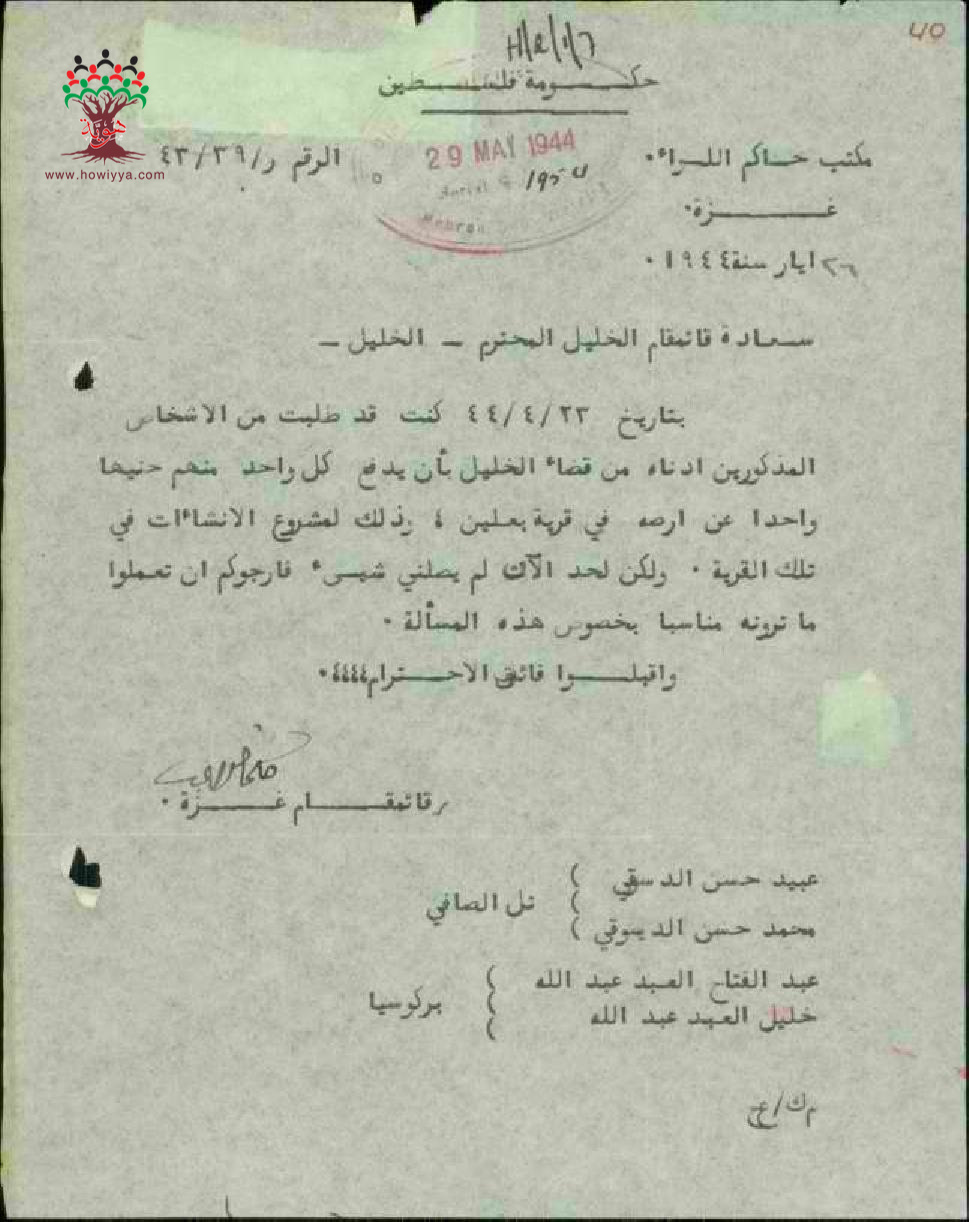 40
حكـــومة فلســـطين
هوية
www.howiyya.com
مكتب حاكم اللـواء٠
الرقم ر/٤٣/٣٩
29 MAY 1944
Serial
Hebron
غـــــــزة٠
٢٦ ايار سنة ١٩٤٤ ٠
ســعـادة قائمقام الخليل المحترم — الخليل —
بتاريخ ٤٤/٤/٢٣ كنت قد طلبت من الاشخاص
المذكورين ادناه من قضاء الخليل بأن يدفع كل واحد منهم جنيها
واحدا عن ارضه في قرية بعلين ٤ وذلك لمشروع الانشاءات في
تلك القرية ٠ ولكن لحد الآن لم يصلني شيىء فارجوكم ان تعملوا
ما ترونه مناسبا بخصوص هذه المسألة ٠
واقبلـــوا فائق الاحـــترام٤٤٤٤٠
قائمقـــــام غـــــزة ٠
عبيد حسن الدسقي
محمد حسن الديسوقي
تل الصافي
عبد الفتاح العبد عبد الله
خليل العبد عبد الله
بركوسيا
م ك/ع ج